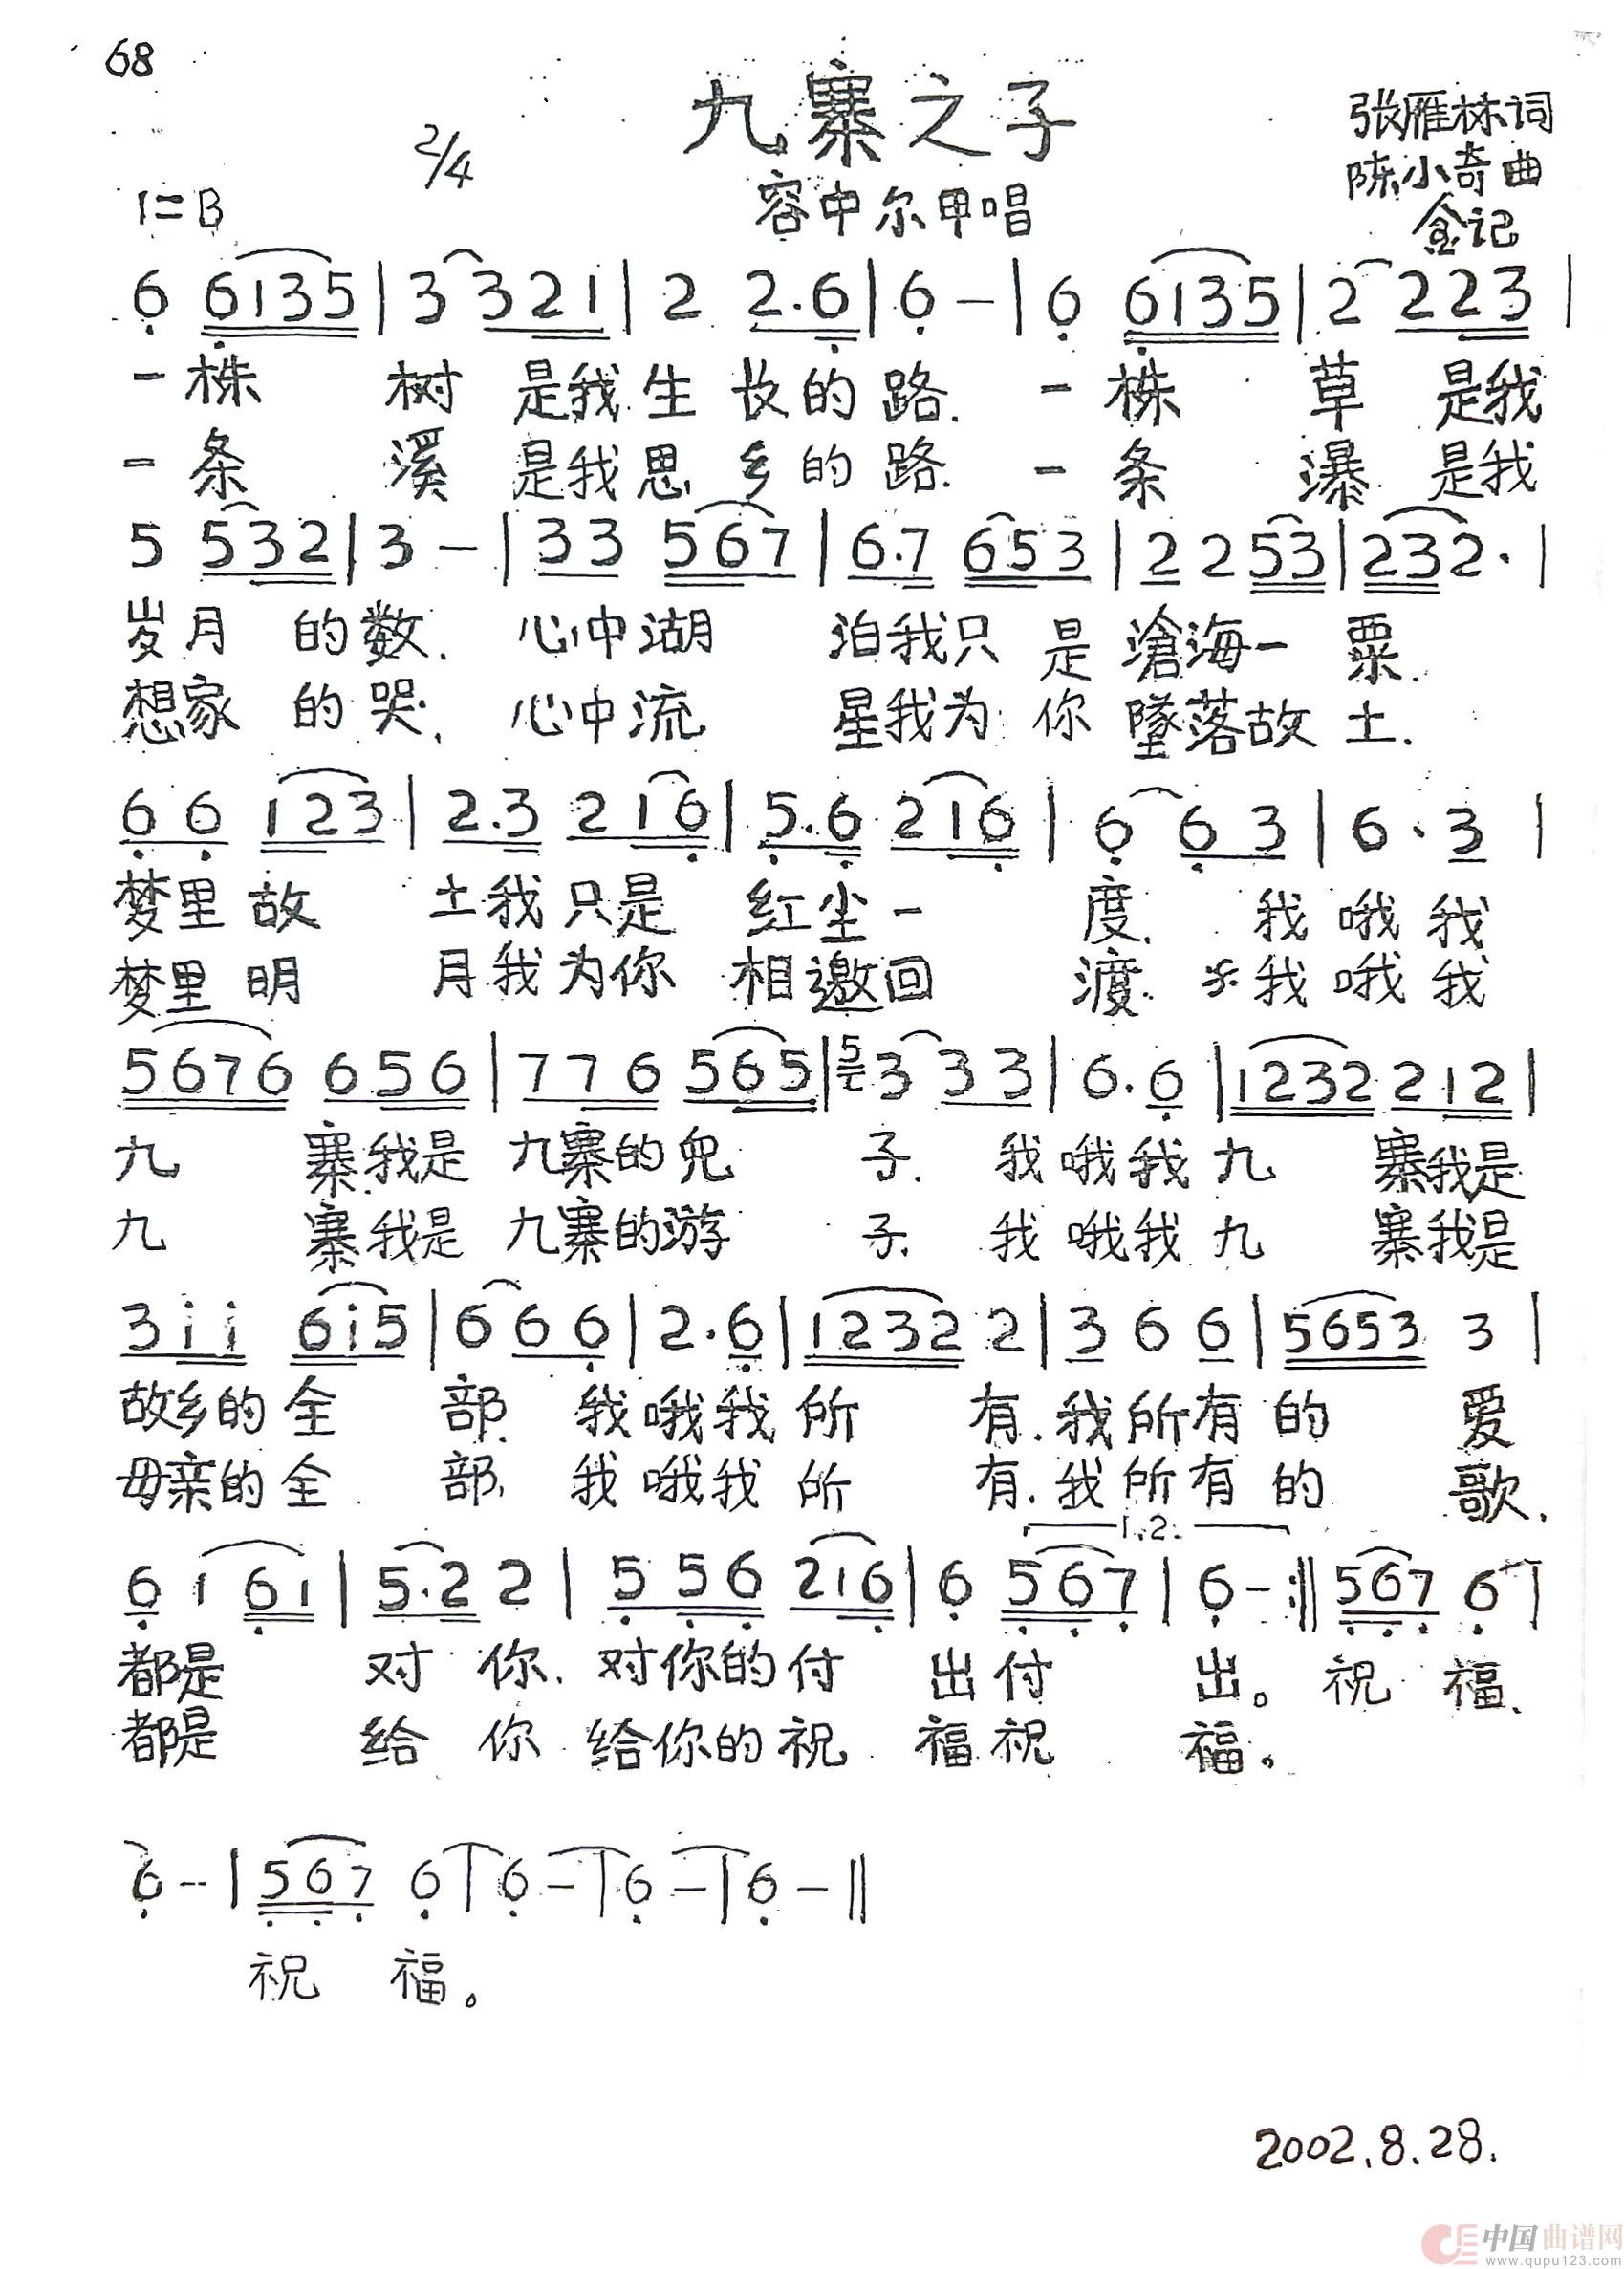 68
九寨之子
2/4
1=B
容中尔甲唱
张雁林词
陈小奇曲
金记
6 6135 | 3 321 | 2 2.6 | 6 — | 6 6135 | 2 223 |
一株 树 是我生 长的路. 一株 草 是我
一条 溪 是我思 乡的路. 一条 瀑 是我
5 532 | 3 — | 33 567 | 6.7 653 | 2 2 53 | 232. |
岁月 的数. 心中湖 泊我只 是 滄海一 粟.
想家 的哭. 心中流 星我为 你 墜落故 土.
6 6 123 | 2.3 216 | 5.6 216 | 6 6 3 | 6 . 3 |
梦里故 土我只是 红尘一 度. 我哦我
梦里明 月我为你 相邀回 渡. 我哦我
5676 656 | 776 565 | 5 3 33 | 6.6 | 1232 212 |
九 寨我是 九寨的儿 子. 我哦我九 寨我是
九 寨我是 九寨的游 子. 我哦我九 寨我是
3ii 6i5 | 6 66 | 2.6 | 1232 2 | 3 6 6 | 5653 3 |
故乡的全 部. 我哦我所 有.我所有的 爱
母亲的全 部. 我哦我所 有.我所有的 歌.
1.2.
6 1 61 | 5.2 2 | 556 216 | 6 567 | 6 - :‖ 567 6 |
都是 对 你. 对你的付 出付 出。 祝 福.
都是 给 你 给你的祝 福祝 福。
6 -- | 567 6 | 6 — | 6 — | 6 — ‖
祝 福。
2002.8.28.
中国曲谱网
www.qupu123.com